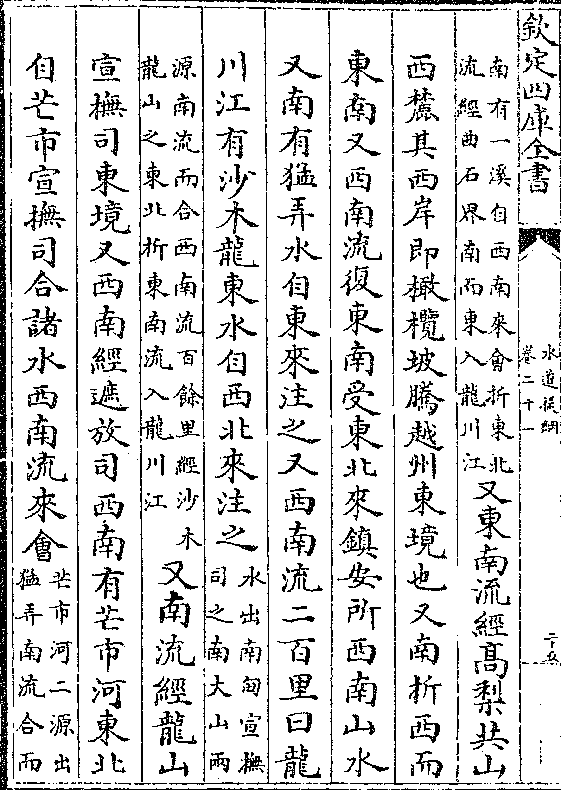 欽定四庫全書
水道提綱
卷二十一
二十五
南有一溪自西南來會折東北
流經曲石界南而東入龍川江
又東南流經高梨共山
西麓其西岸即橄欖坡騰越州東境也又南折西而
東南又西南流復東南受東北來鎮安所西南山水
又南有猛弄水自東來注之又西南流二百里曰龍
川江有沙木龍東水自西北來注之
水出南甸宣撫
司之南大山兩
源南流而合西南流百餘里經沙木
龍山之東北折東南流入龍川江
又南流經龍山
宣撫司東境又西南經遮放司西南有芒市河東北
自芒市宣撫司合諸水西南流來會
芒市河二源出
猛弄南流合而